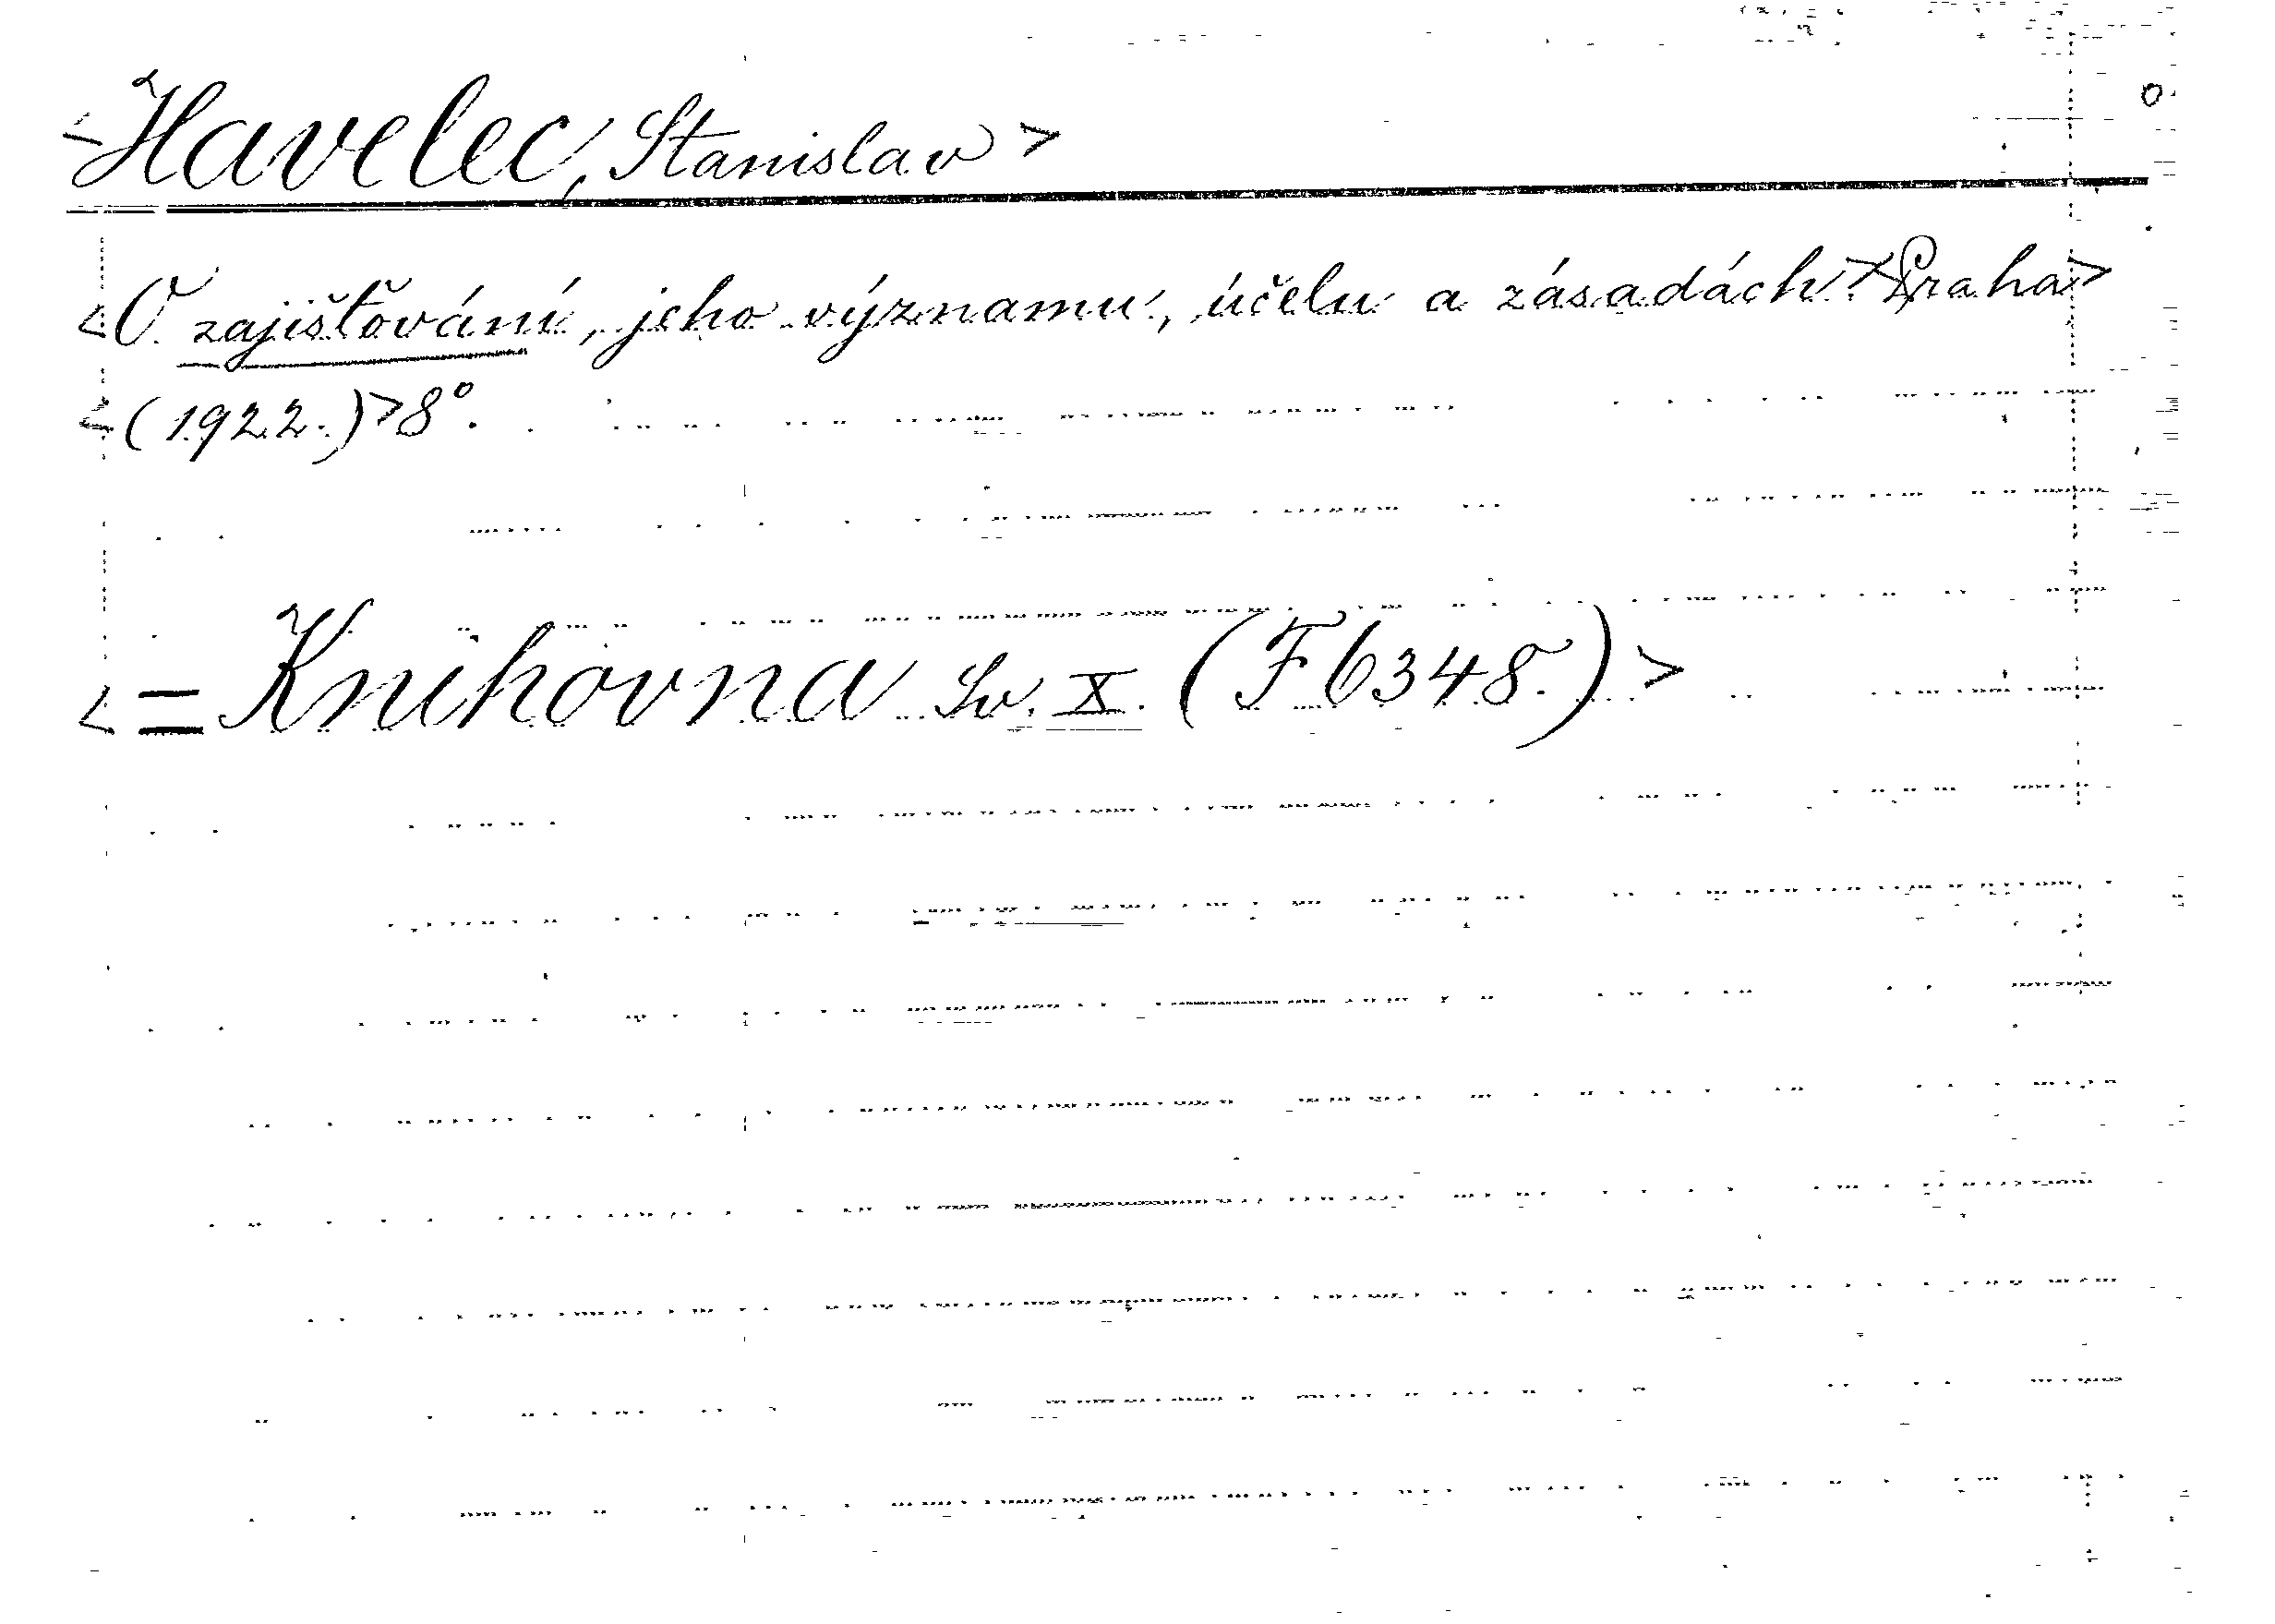 <Havelec, Stanislav>
<O zajišťování, jeho významu, účelu a zásadách.> <Praha>
<(1922.)> 8°.
<= Knihovna Sv. X. (F 6348.)>